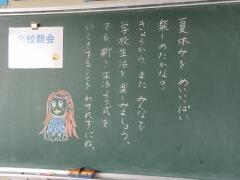 全校朝会
夏休みを めいいっぱい
楽しめたかな？
きょうから また みんなで
学校生活を 楽しみましょう。
でも 新しい生活よう式を
いしきすることを わすれずにね。